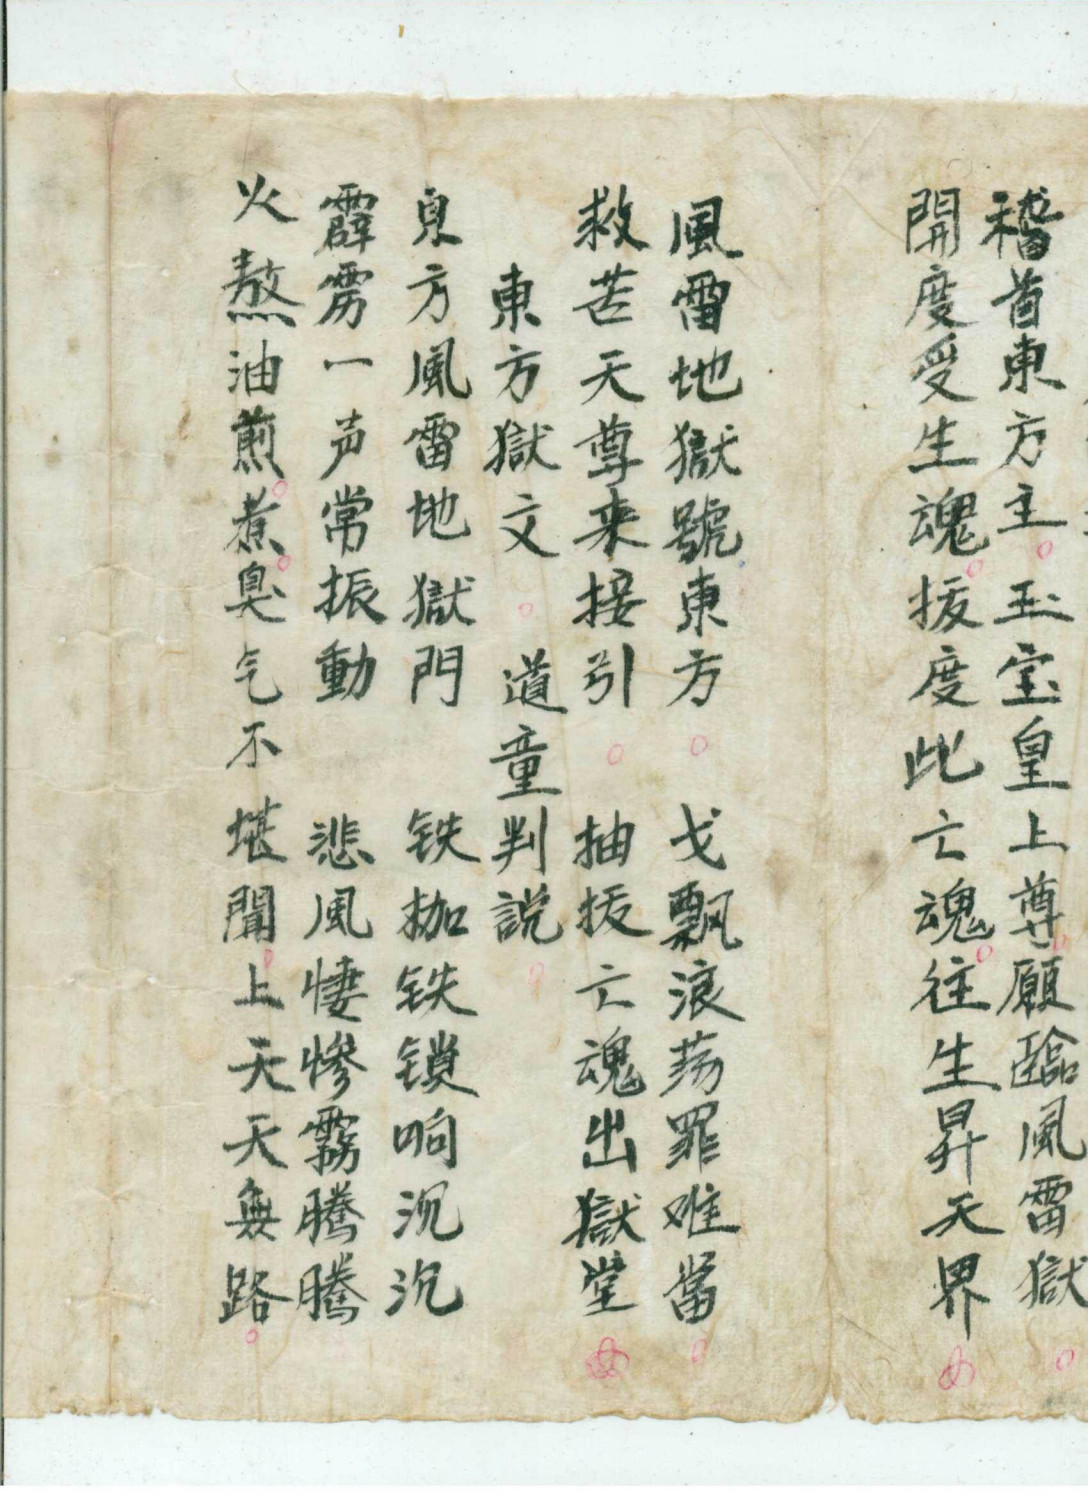 稽首東方主玉宝皇上尊願臨風雷獄
開度受生魂拔度此亡魂往生昇天界
風雷地獄號東方 戈飄浪荡罪难當
救苦天尊来接引 抽拔亡魂出獄堂
東方獄文 道童判説
東方風雷地獄門 铁枷铁锁响沉沉
霹雳一声常振動 悲風悽惨霧騰騰
火熬油煎煮臭气不堪聞上天天無路